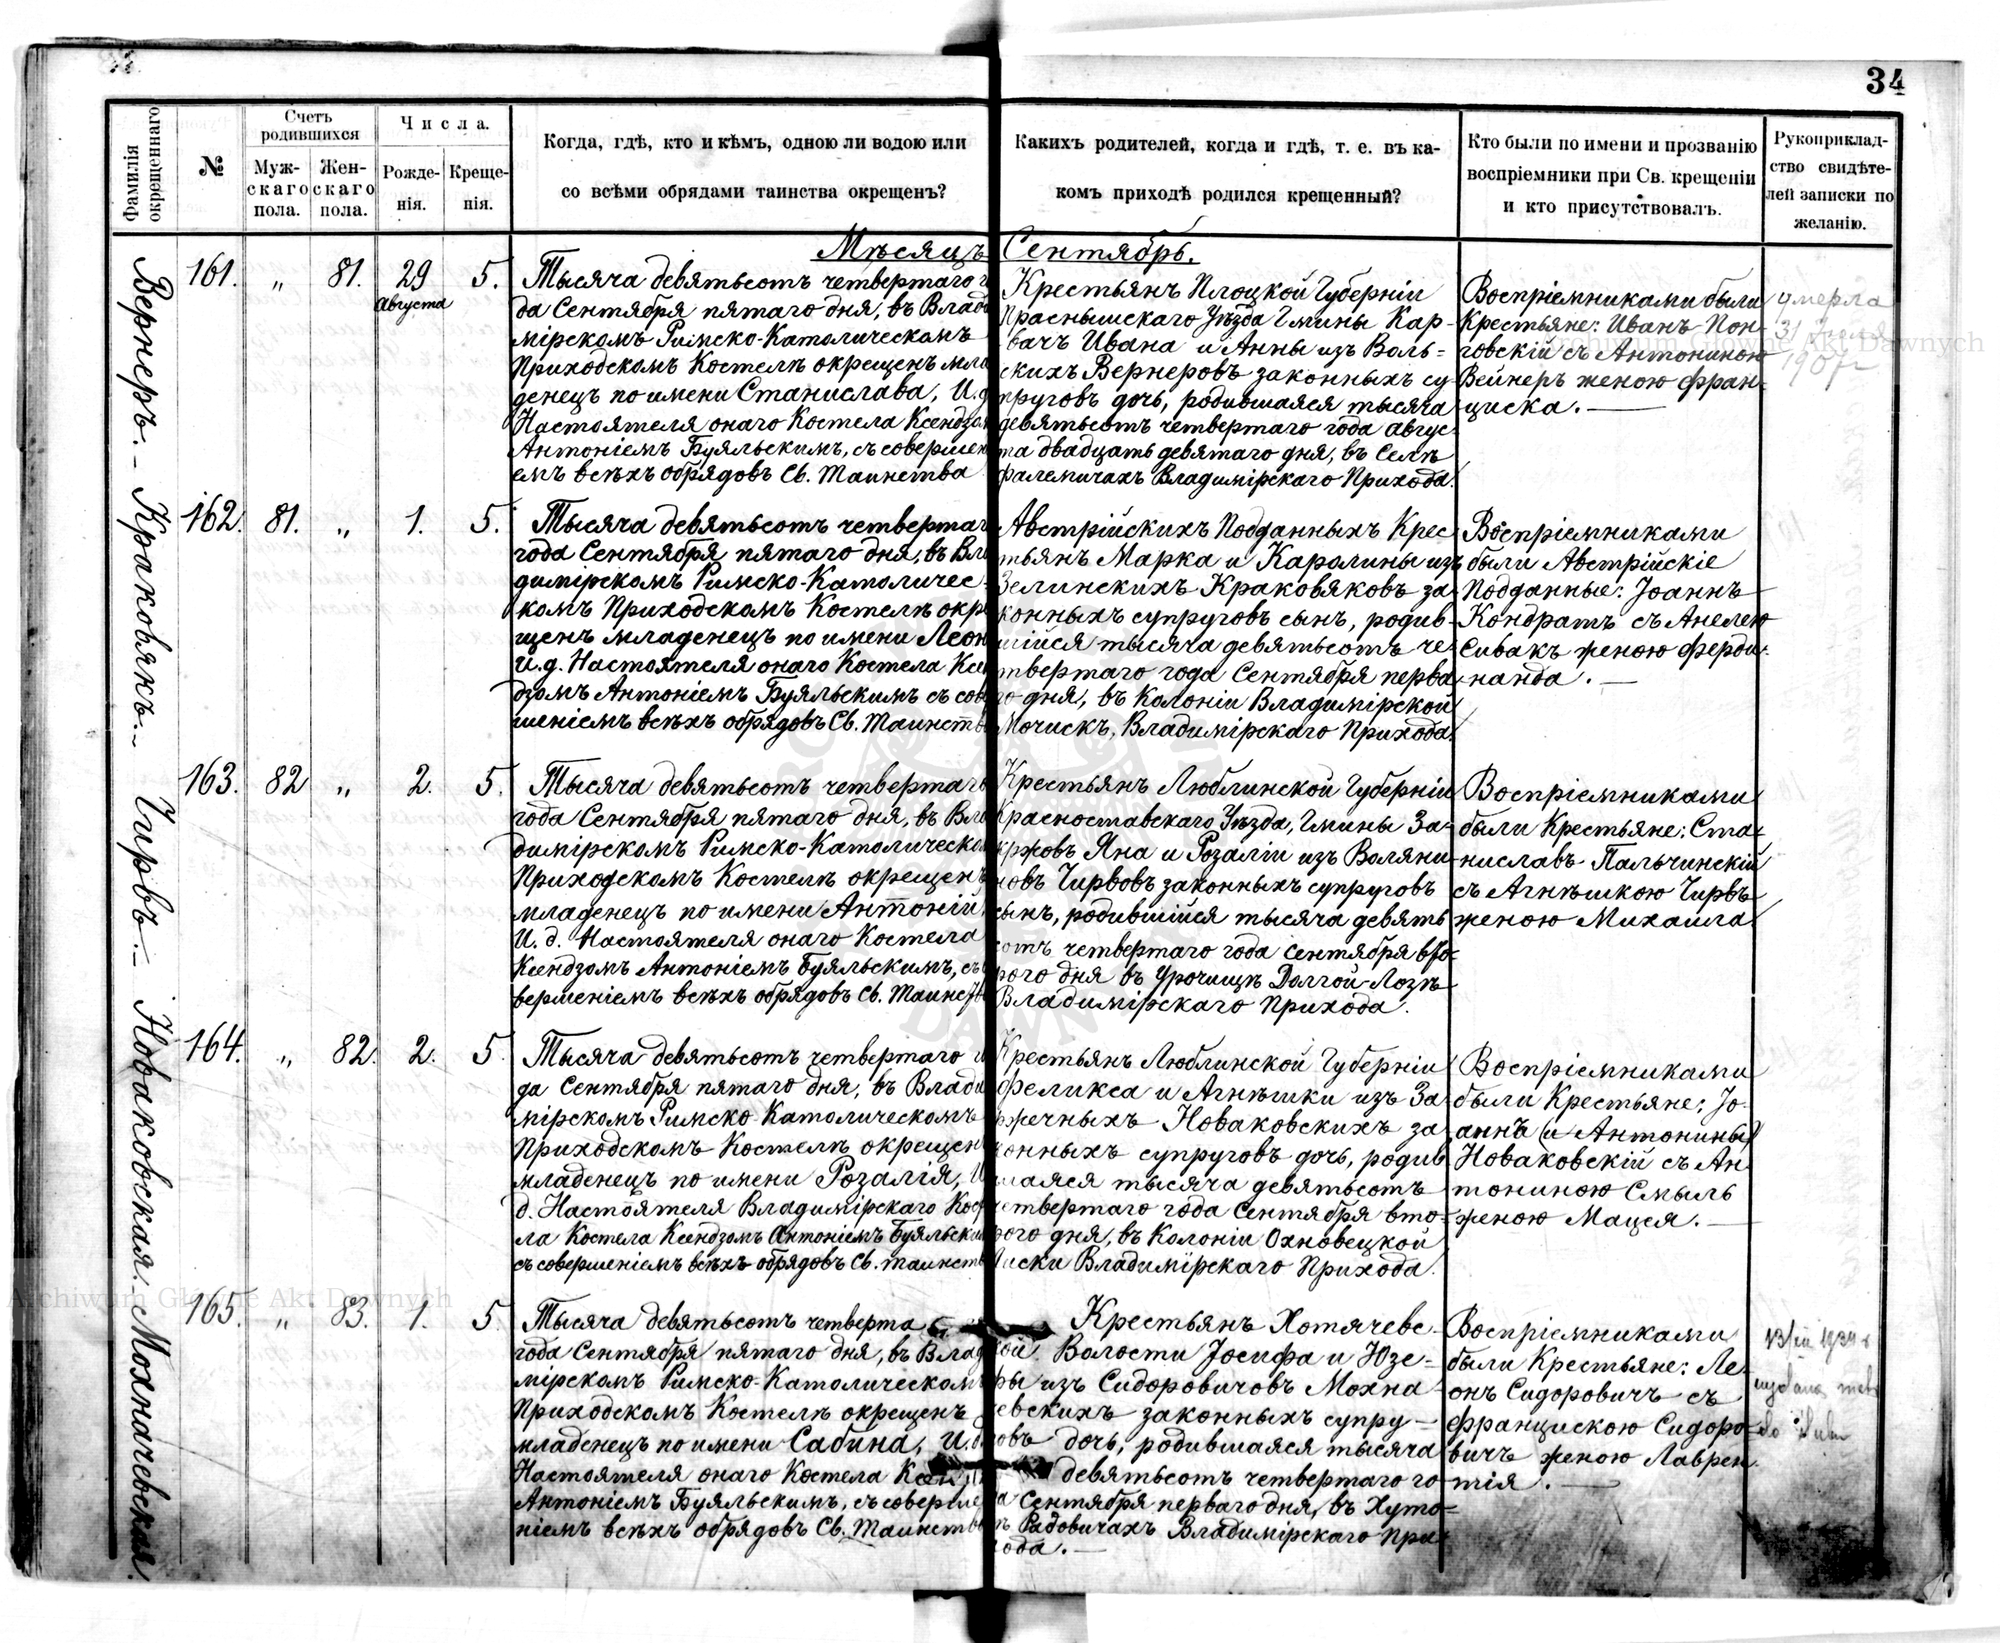 34
Фамилія
окрещеннаго
№
Счетъ
родившихся
Муж-
скаго
пола.
Жен-
скаго
пола.
Числа.
Рожде-
нія.
Креще-
нія.
Когда, гдѣ, кто и кѣмъ, одною ли водою или
со всѣми обрядами таинства окрещенъ?
Какихъ родителей, когда и гдѣ, т. е. въ ка-
комъ приходѣ родился крещенный?
Кто были по имени и прозванію
воспріемники при Св. крещеніи
и кто присутствовалъ.
Рукоприклад-
ство свидѣте-
лей записки по
желанію.
Мѣсяцъ Сентябрь.
Вернеръ.
161.
„
81.
29
Августа
5.
Тысяча девятьсотъ четвертаго
да Сентября пятаго дня, въ Влади
мірскомъ Римско-Католическомъ
Приходскомъ Костелѣ окрещенъ мла
денецъ по имени Станислава, И.д
Настоятеля онаго Костела Ксендзом
Антоніемъ Буяльскимъ, съ совершен
емъ всѣхъ обрядовъ Св. Таинства
Крестьянъ Плоцкой Губерніи
Праснышскаго Уѣзда Гмины Кар-
вачъ Ивана и Анны изъ Воль-
скихъ Вернеровъ законныхъ су-
пруговъ дочь, родившаяся тысяча
девятьсотъ четвертаго года авгус-
та двадцать девятаго дня, въ Селѣ
Фалемичахъ Владимірскаго Прихода.
Воспріемниками были
Крестьяне: Иванъ Пон-
говскій съ Антониною
Вейнеръ женою Фран-
циска.
умерла
31 Іюля
1907 г
Краковякъ.
162.
81.
„
1.
5.
Тысяча девятьсотъ четвертаг
года Сентября пятаго дня, въ Вла
димірскомъ Римско-Католичес-
комъ Приходскомъ Костелѣ окре
щенъ младенецъ по имени Леон
И.д. Настоятеля онаго Костела Ксен
дзомъ Антоніемъ Буяльскимъ съ сове
шеніемъ всѣхъ обрядовъ Св. Таинств
Австрійскихъ Подданныхъ Крес
тьянъ Марка и Каролины изъ
Зелинскихъ Краковяковъ за-
конныхъ супруговъ сынъ, родив-
шійся тысяча девятьсотъ че-
твертаго года Сентября перва-
го дня, въ Колоніи Владимірской
Мочискъ, Владимірскаго Прихода.
Воспріемниками
были Австрійскіе
Подданные: Іоаннъ
Кондратъ съ Анелею
Сивакъ женою Ферди-
нанда.
Чирвъ.
163.
82
„
2.
5.
Тысяча девятьсотъ четвертаго
года Сентября пятаго дня, въ Вла
димірскомъ Римско-Католическом
Приходскомъ Костелѣ окрещенъ
младенецъ по имени Антоній,
И. д. Настоятеля онаго Костела
Ксендзомъ Антоніемъ Буяльскимъ, съ
вершеніемъ всѣхъ обрядовъ Св. Таинств
Крестьянъ Люблинской Губерніи
Красноставскаго Уѣзда, Гмины За-
кржовъ Яна и Розаліи изъ Воляни-
новъ Чирвовъ законныхъ супруговъ
сынъ, родившійся тысяча девять
сотъ четвертаго года Сентября вто-
рого дня въ Урочищѣ Долгой-Лозѣ
Владимірскаго Прихода.
Воспріемниками
были Крестьяне: Ста-
ниславъ Пальчинскій
съ Агнѣшкою Чирвъ
женою Михаила.
Новаковская.
164.
„
82.
2.
5.
Тысяча девятьсотъ четвертаго
да Сентября пятаго дня, въ Влади
мірскомъ Римско-Католическомъ
Приходскомъ Костелѣ окрещен
младенецъ по имени Розалія, И
д. Настоятеля Владимірскаго Кос
ла Костела Ксендзомъ Антоніемъ Буяльским
съ совершеніемъ всѣхъ обрядовъ Св. таинств
Крестьянъ Люблинской Губерніи
Феликса и Агнѣшки изъ За-
ржечныхъ Новаковскихъ за-
конныхъ супруговъ дочь, родив
шаяся тысяча девятьсотъ
четвертаго года Сентября вто-
рого дня, въ Колоніи Охновецкой
Владимірскаго Прихода.
Воспріемниками
были Крестьяне: Іо-
аннъ (и Антонины)
Новаковскій съ Ан-
тониною Смыль
женою Мацея.
Мохначевская.
165.
„
83.
1.
5.
Тысяча девятьсотъ четверта
года Сентября пятаго дня, въ Влад
мірскомъ Римско-Католическомъ
Приходскомъ Костелѣ окрещенъ
младенецъ по имени Сабина, И.д
Настоятеля онаго Костела Ксен
Антоніемъ Буяльскимъ, съ соверше
ніемъ всѣхъ обрядовъ Св. Таинств
Крестьянъ Хотячевс-
кой Волости Іосифа и Юзе-
фы изъ Сидоровичовъ Мохна-
чевскихъ законныхъ супру-
говъ дочь, родившаяся тысяча
девятьсотъ четвертаго го-
да Сентября перваго дня, въ Хуто-
рѣ Радовичахъ Владимірскаго При-
хода.
Воспріемниками
были Крестьяне: Ле-
онъ Сидоровичъ съ
Францискою Сидоро-
вичъ женою Лаврен-
тія.
Archiwum Główne Akt Dawnych
Archiwum Główne Akt Dawnych